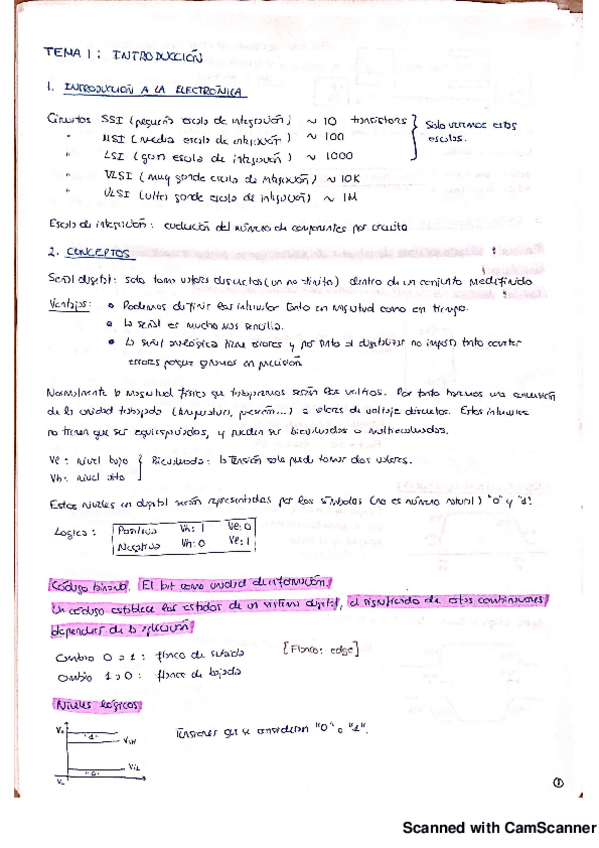 TEMA 1: INTRODUCCIÓN
1. INTRODUCCION A LA ELECTRÓNICA
Circuitos SSI (pequeña escala de integración) ~ 10 transistores } Solo veremos estas
" MSI (media escala de integración) ~ 100 escalas.
" LSI (gran escala de integración) ~ 1000
" VLSI (muy grande escala de integración) ~ 10K
" ULSI (ultra grande escala de integración) ~ 1M
Escala de integración: evolución del número de componentes por circuito
2. CONCEPTOS
Señal digital: solo toma valores discretos (un no finito) dentro de un conjunto predefinido
Ventajas: • Podemos definir los intervalos tanto en magnitud como en tiempo.
• La señal es mucho más sencilla.
• La señal analógica tiene errores y por tanto al digitalizar no importa tanto cometer
errores porque ganamos en precisión
Normalmente la magnitud física que trabajaremos serán los voltios. Por tanto haremos una conversión
de la unidad trabajada (temperatura, presión...) a valores de voltaje discretos. Estos intervalos
no tienen que ser equiespaciados, y pueden ser bievaluados o multievaluados.
Ve: nivel bajo } Bievaluada: la tensión solo puede tomar dos valores.
Vh: nivel alto
Estos niveles en digital serán representados por los símbolos (no es número natural) "0" y "1".
Logica: Positiva Vh: 1 Ve: 0
Negativa Vh: 0 Ve: 1
Código binario. El bit como unidad de información.
Un código establece los estados de un sistema digital, el significado de estas combinaciones
dependerá de la aplicación
Cambio 0 a 1: flanco de subida [Flanco: edge]
Cambio 1 a 0: flanco de bajada
Niveles lógicos
"1" VIH
Tensiones que se consideran "0" o "1".
"0" VIL
1
Scanned with CamScanner